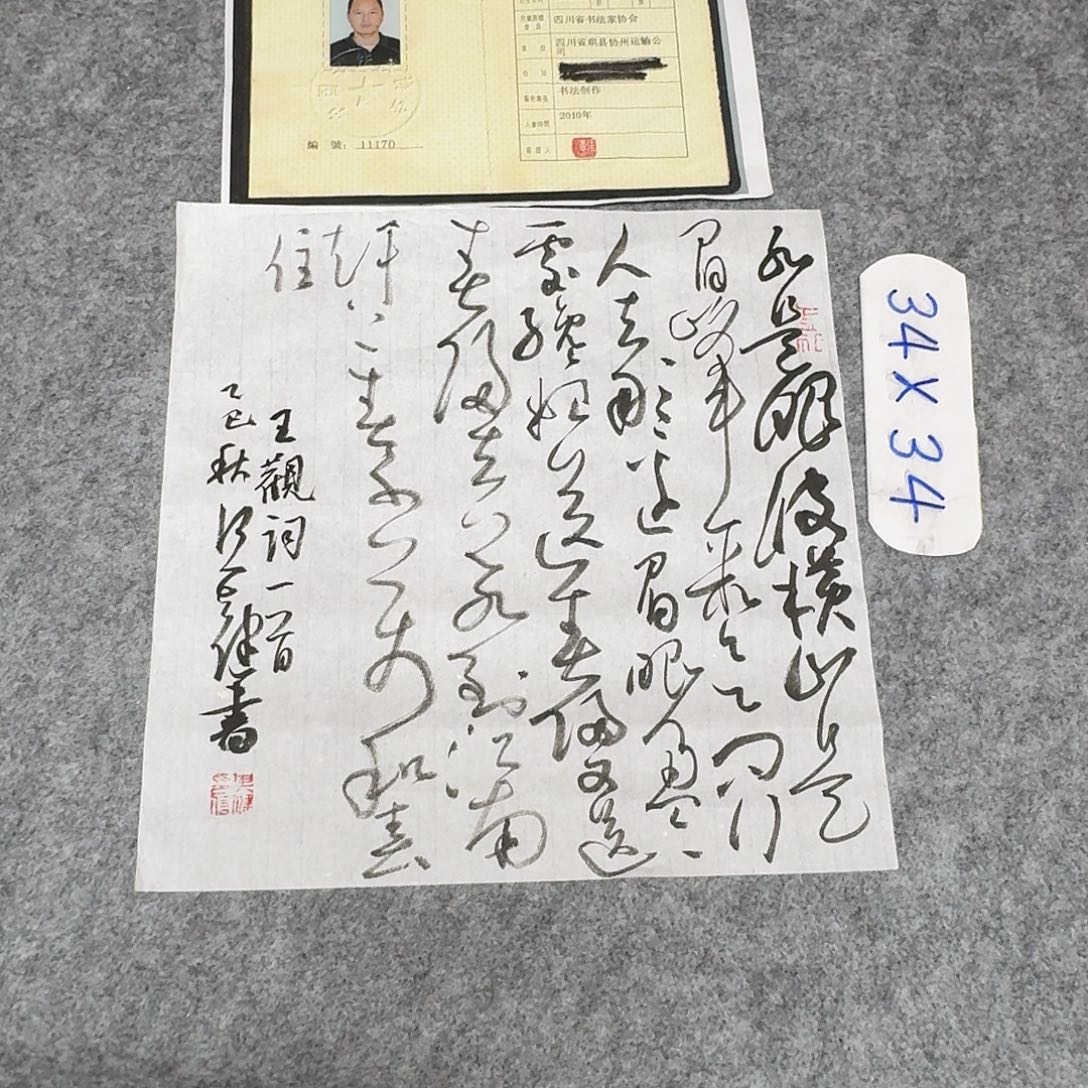 四川省书法家协会
四川省珙县协州运输公
司
书法创作
2010年
入會時間
編 號: 11170
34×34
水是眼波横山是
眉峰聚欲问行
人去那边眉眼盈盈
处才始送春归又送
春归去若到江南
上春千万和春
住
王觀词一首
乙巳秋 健書